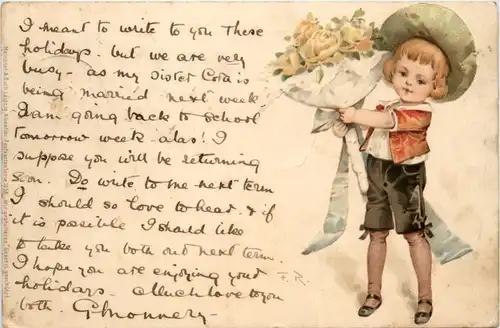 I meant to write to you these
holidays. but we are very
busy - as my sister Cora is
being married next week.
I am going back to school
tomorrow week - alas! I
suppose you will be returning
soon. Do write to me next term
I should so love to hear & if
it is possible I should like
to take you both out next term.
I hope you are enjoying your
holidays. Much love to you
both.
F.R.